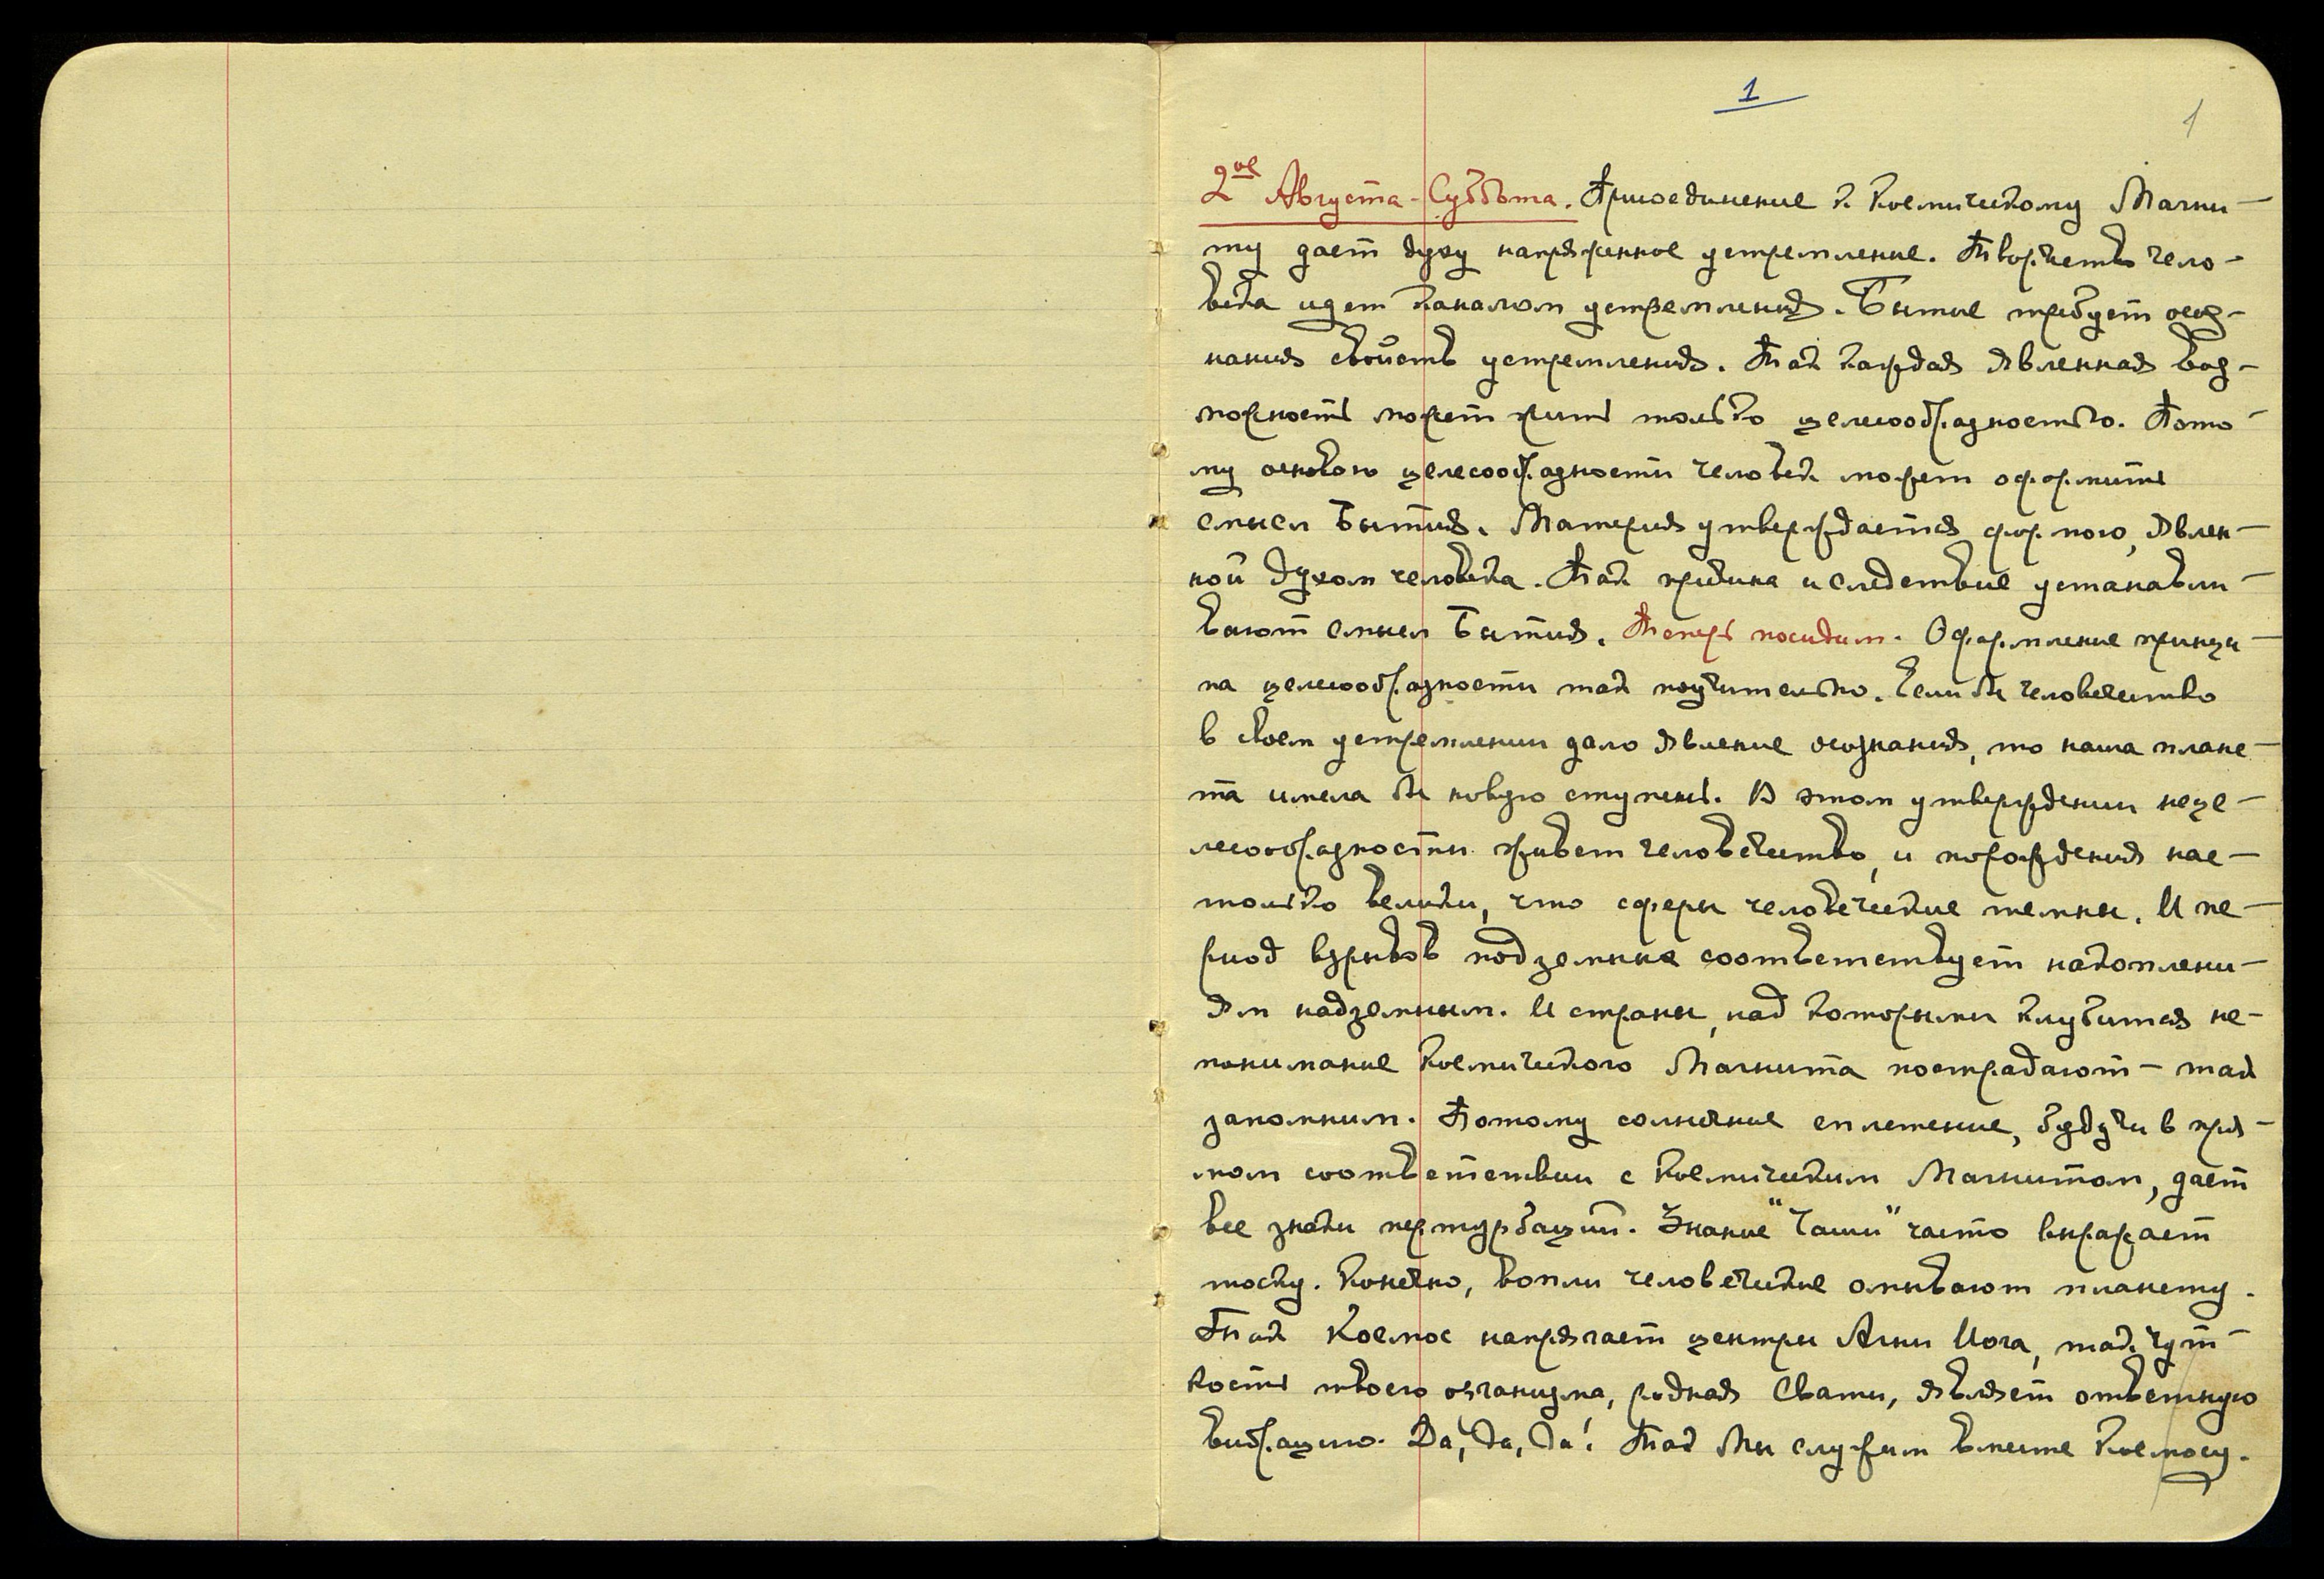 1
1
2ое Августа - Суббота. Присоединение к Космическому Магни-
ту дает духу напряженное устремление. Творчество чело-
века идет каналом устремления. Бытие требует осоз-
нания свойств устремления. Так каждая явленная воз-
можность может жить только целесообразностью. Пото-
му основою целесообразности человек может оформить
смысл Бытия. Материя утверждается формою, явлен-
ной духом человека. Так причина и следствие устанавли-
вают смысл Бытия. Теперь посидим. Оформление принци-
па целесообразности так поучительно. Если бы человечество
в своем устремлении дало явление осознания, то наша плане-
та имела бы новую ступень. В этом утверждении неце-
лесообразности живет человечество, и порождения нас-
только велики, что сферы человеческие темны. И пе-
риод взрывов подземных соответствует накоплени-
ям надземным. И страны, над которыми клубится не-
понимание Космического Магнита пострадают - так
запомним. Потому солнечное сплетение, будучи в пря-
мом соответствии с Космическим Магнитом, дает
все знаки пертурбаций. Знание "Чаши" часто выражает
тоску. Конечно, вопли человеческие омывают планету.
Так Космос напрягает центры Агни Йога, так чут-
кость твоего организма, родная Свати, являет ответную
вибрацию. Да, да, да! Так Мы служим вместе Космосу.